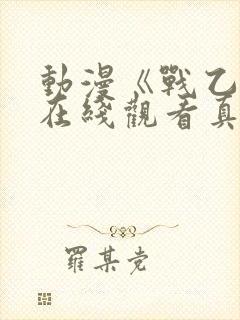 動漫《戰乙
在綫觀看真
羅某党